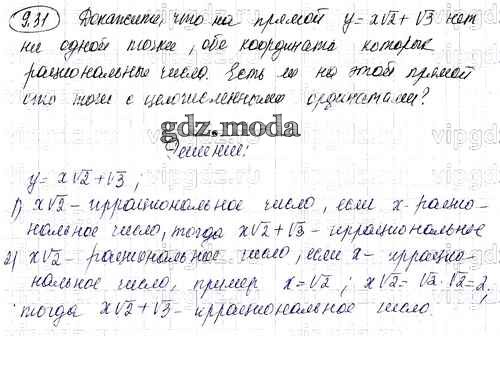 9.31 Докажите, что на прямой y = x√2 + √3 нет
ни одной точки, обе координата которых
рациональные число. Есть ли на этой прямой
сто точек с целочисленными ординатами?
gdz.moda
Решение:
y = x√2 + √3;
1) x√2 - иррациональное число, если x - рацио-
нальное число, тогда x√2 + √3 - иррациональное
2) x√2 - рациональное число, если x - иррацио-
нальное число, пример x = √2; x√2 = √2 · √2 = 2;
тогда x√2 + √3 - иррациональное число.